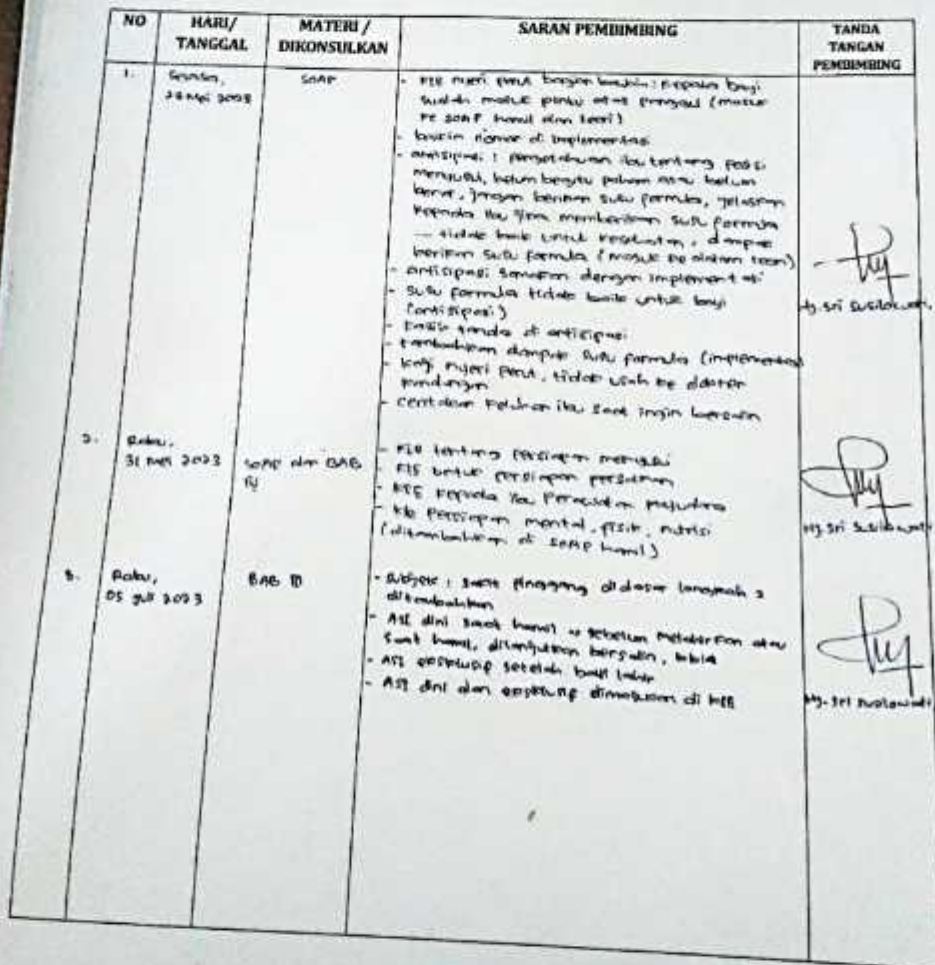 NO HARI/ TANGGAL MATERI / DIKONSULKAN SARAN PEMBIMBING TANDA TANGAN PEMBIMBING
1. 2023 SOAP - KIE nyeri perut bagian : kepala bayi
sudah masuk pintu atas panggul (masuk
ke SOAP hamil dan teori)
- nomor di implementasi
- antisipasi : pengetahuan ibu tentang posisi
menyusui, belum begitu paham atau belum
benar, jangan berikan susu formula, jelaskan
kepada ibu memberikan susu formula
tidak baik untuk kesehatan, dampak
berikan susu formula (masuk ke dalam teori)
- antisipasi samakan dengan implementasi
- susu formula tidak baik untuk bayi
(antisipasi)
- tanda di antisipasi
- tambahkan dampak susu formula (implementasi)
- nyeri perut, tidak usah ke dokter
kandungan
- ceritakan keluhan ibu saat ingin bersalin
Hj. Sri Susilawati
2. Rabu,
31 Mei 2023 SOAP dan BAB IV
- KIE tentang persiapan menyusui
- KIE untuk persiapan persalinan
- KIE kepada ibu perawatan payudara
- KIE persiapan mental, fisik, nutrisi
(ditambahkan di SOAP hamil)
Hj. Sri Susilawati
3. Rabu,
05 Juli 2023 BAB
- Subjek : pinggang didasar langkah 2
ditambahkan
- ASI dini saat hamil sebelum melahirkan atau
saat hamil, dilanjutkan bersalin,
- ASI eksklusif setelah bayi lahir
- ASI dini dan eksklusif dimasukan di KIE
Hj. Sri Susilawati